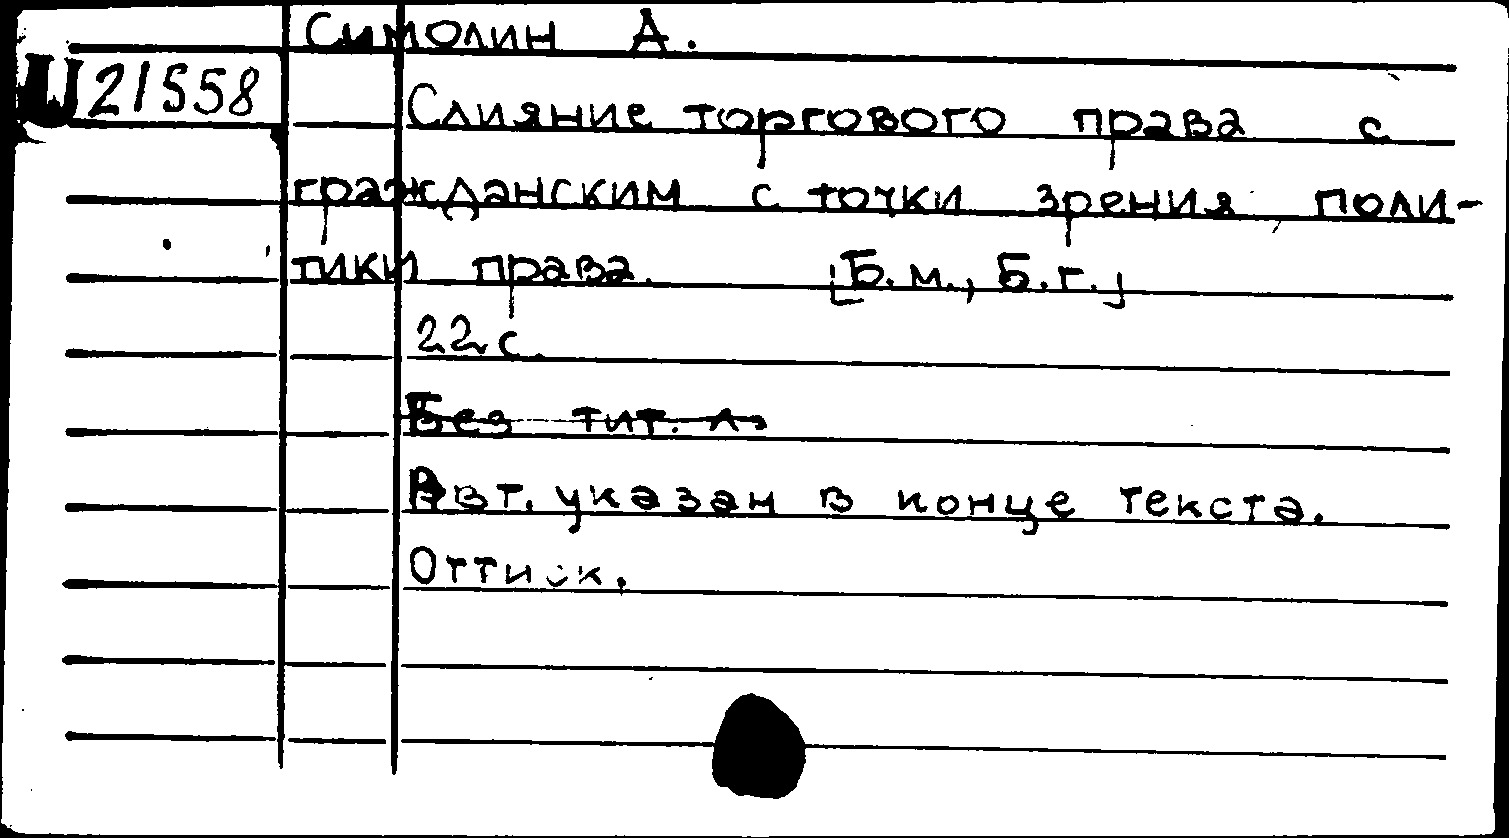 Симолин А.
U 21558
Слияние торгового права с
гражданским с точки зрения поли-
тики права. [Б.м., Б.г.]
22 с.
Без тит. л.
Авт. указан в конце текста.
Оттиск.